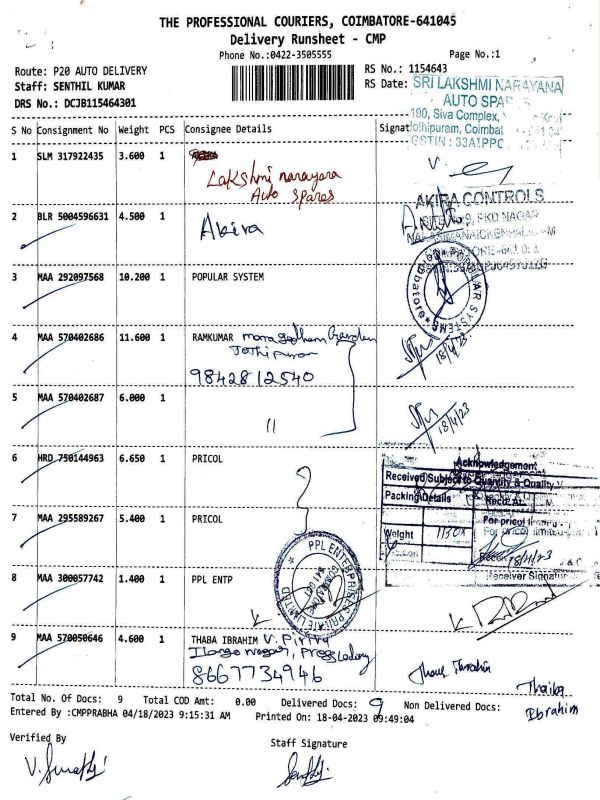 THE PROFESSIONAL COURIERS, COIMBATORE-641045
Delivery Runsheet - CMP
Phone No.:0422-3505555
Page No.:1
Route: P20 AUTO DELIVERY
RS No.: 1154643
Staff: SENTHIL KUMAR
RS Date:
DRS No.: DCJB115464301
SRI LAKSHMI NARAYANA
AUTO SPARES
190, Siva Complex,
GSTIN : 33AIPPC
S No Consignment No Weight PCS Consignee Details Signat
1 SLM 317922435 3.600 1
Lakshmi narayara
Auto Spares
AKIRA CONTROLS
2 BLR 5004596631 4.500 1 Akira
3 MAA 292097568 10.200 1 POPULAR SYSTEM
POPULAR SYSTEMS
4 MAA 570402686 11.600 1 RAMKUMAR
9842812540
18/4/23
5 MAA 570402687 6.000 1 11
18/4/23
6 HRD 750144963 6.650 1 PRICOL
Acknowledgement
Received Subject to Quantity & Quality
Packing Details Recd. At
7 MAA 295589267 5.400 1 PRICOL
For pricol
Weight
18/4/23
Receiver Signature
PPL ENTERPRISES PRIVATE LIMITED
8 MAA 300057742 1.400 1 PPL ENTP
9 MAA 570050646 4.600 1 THABA IBRAHIM
8667734946
Thaika
Ibrahim
Total No. Of Docs: 9 Total COD Amt: 0.00 Delivered Docs: 9 Non Delivered Docs:
Entered By :CMPPRABHA 04/18/2023 9:15:31 AM Printed On: 18-04-2023 09:49:04
Verified By
Staff Signature